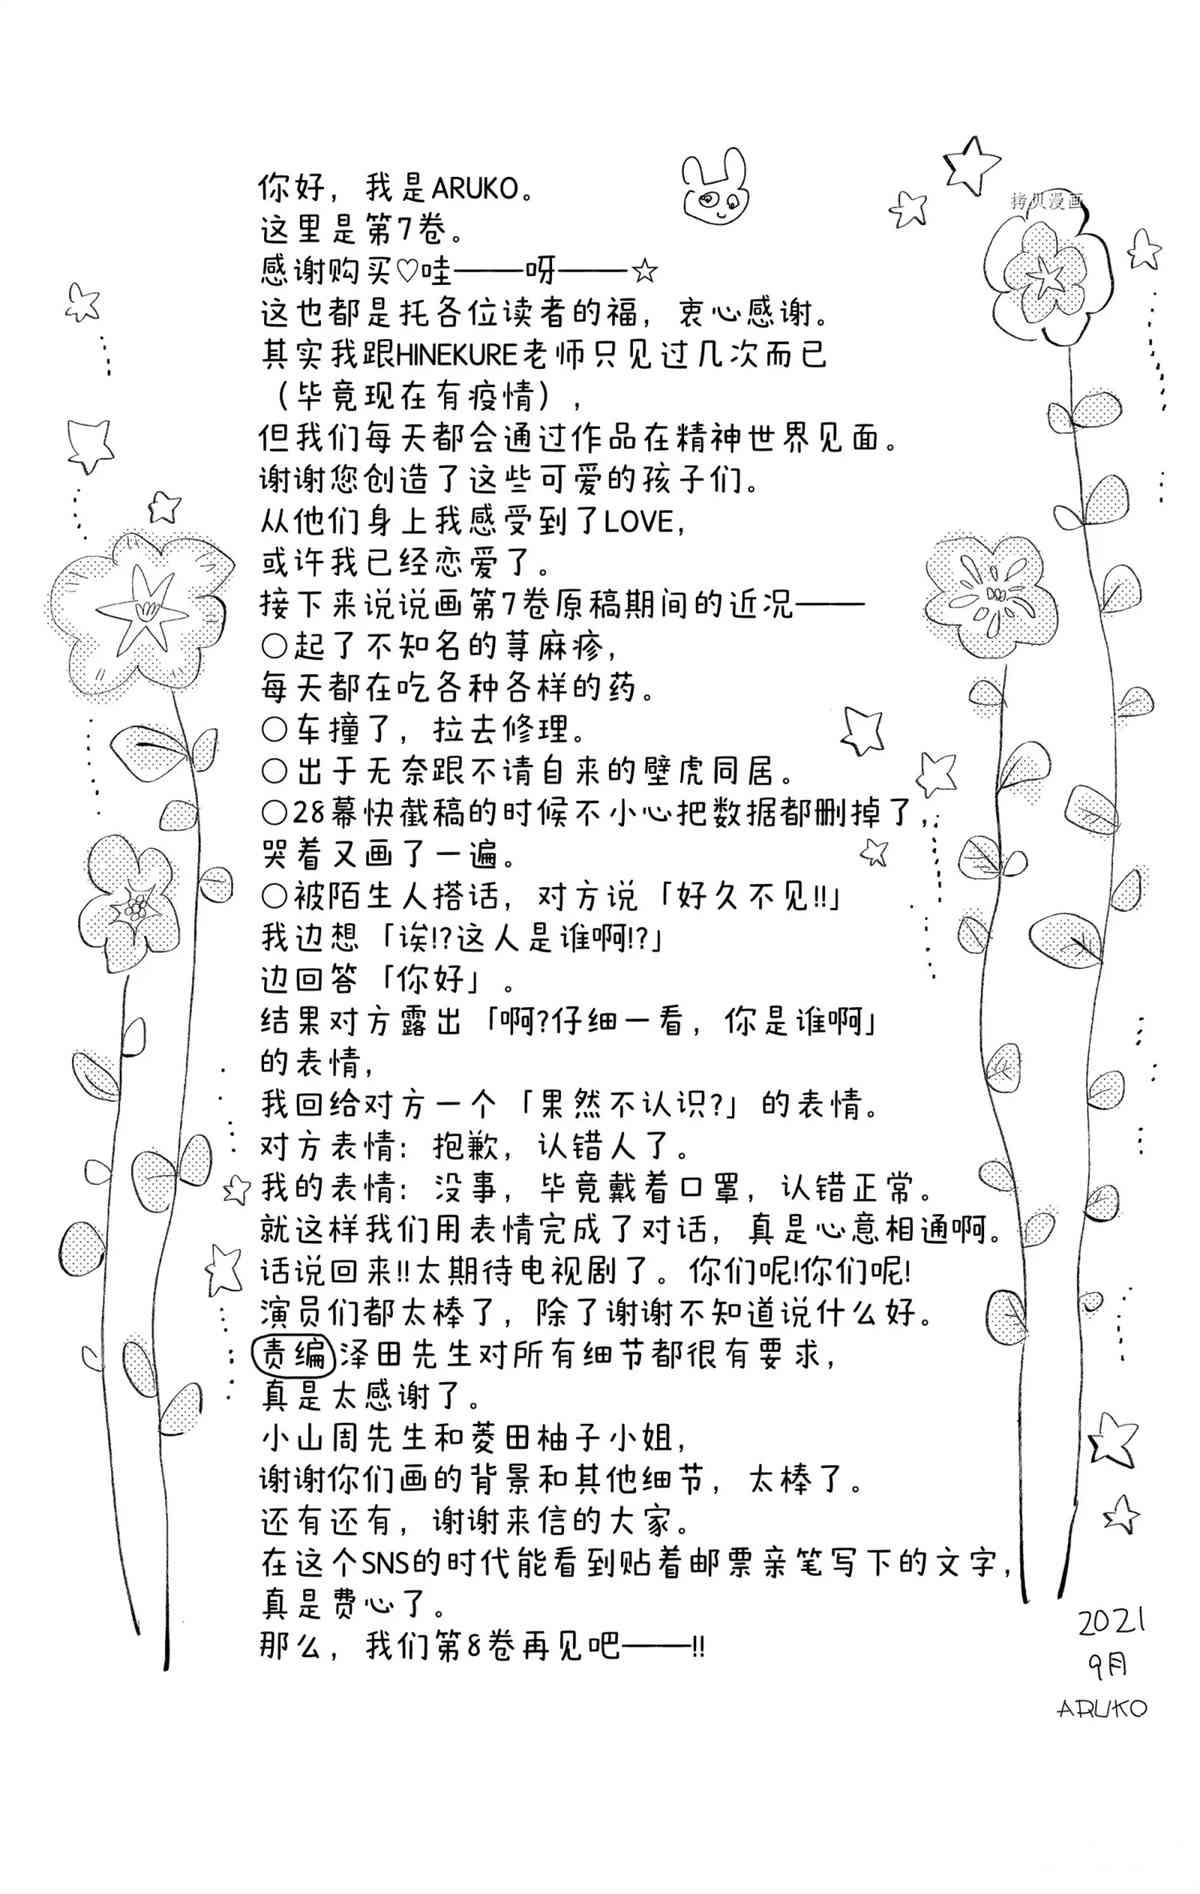 你好，我是ARUKO。
这里是第7卷。
感谢购买♡哇——呀——☆
这也都是托各位读者的福，衷心感谢。
其实我跟HINEKURE老师只见过几次而已
（毕竟现在有疫情），
但我们每天都会通过作品在精神世界见面。
谢谢您创造了这些可爱的孩子们。
从他们身上我感受到了LOVE，
或许我已经恋爱了。
接下来说说画第7卷原稿期间的近况——
○起了不知名的荨麻疹，
每天都在吃各种各样的药。
○车撞了，拉去修理。
○出于无奈跟不请自来的壁虎同居。
○28幕快截稿的时候不小心把数据都删掉了，
哭着又画了一遍。
○被陌生人搭话，对方说「好久不见!!」
我边想「诶!?这人是谁啊!?」
边回答「你好」。
结果对方露出「啊?仔细一看，你是谁啊」
的表情，
我回给对方一个「果然不认识?」的表情。
对方表情：抱歉，认错人了。
我的表情：没事，毕竟戴着口罩，认错正常。
就这样我们用表情完成了对话，真是心意相通啊。
话说回来!!太期待电视剧了。你们呢!你们呢!
演员们都太棒了，除了谢谢不知道说什么好。
责编泽田先生对所有细节都很有要求，
真是太感谢了。
小山周先生和菱田柚子小姐，
谢谢你们画的背景和其他细节，太棒了。
还有还有，谢谢来信的大家。
在这个SNS的时代能看到贴着邮票亲笔写下的文字，
真是费心了。
那么，我们第8卷再见吧——!!
拷贝漫画
2021
9月
ARUKO